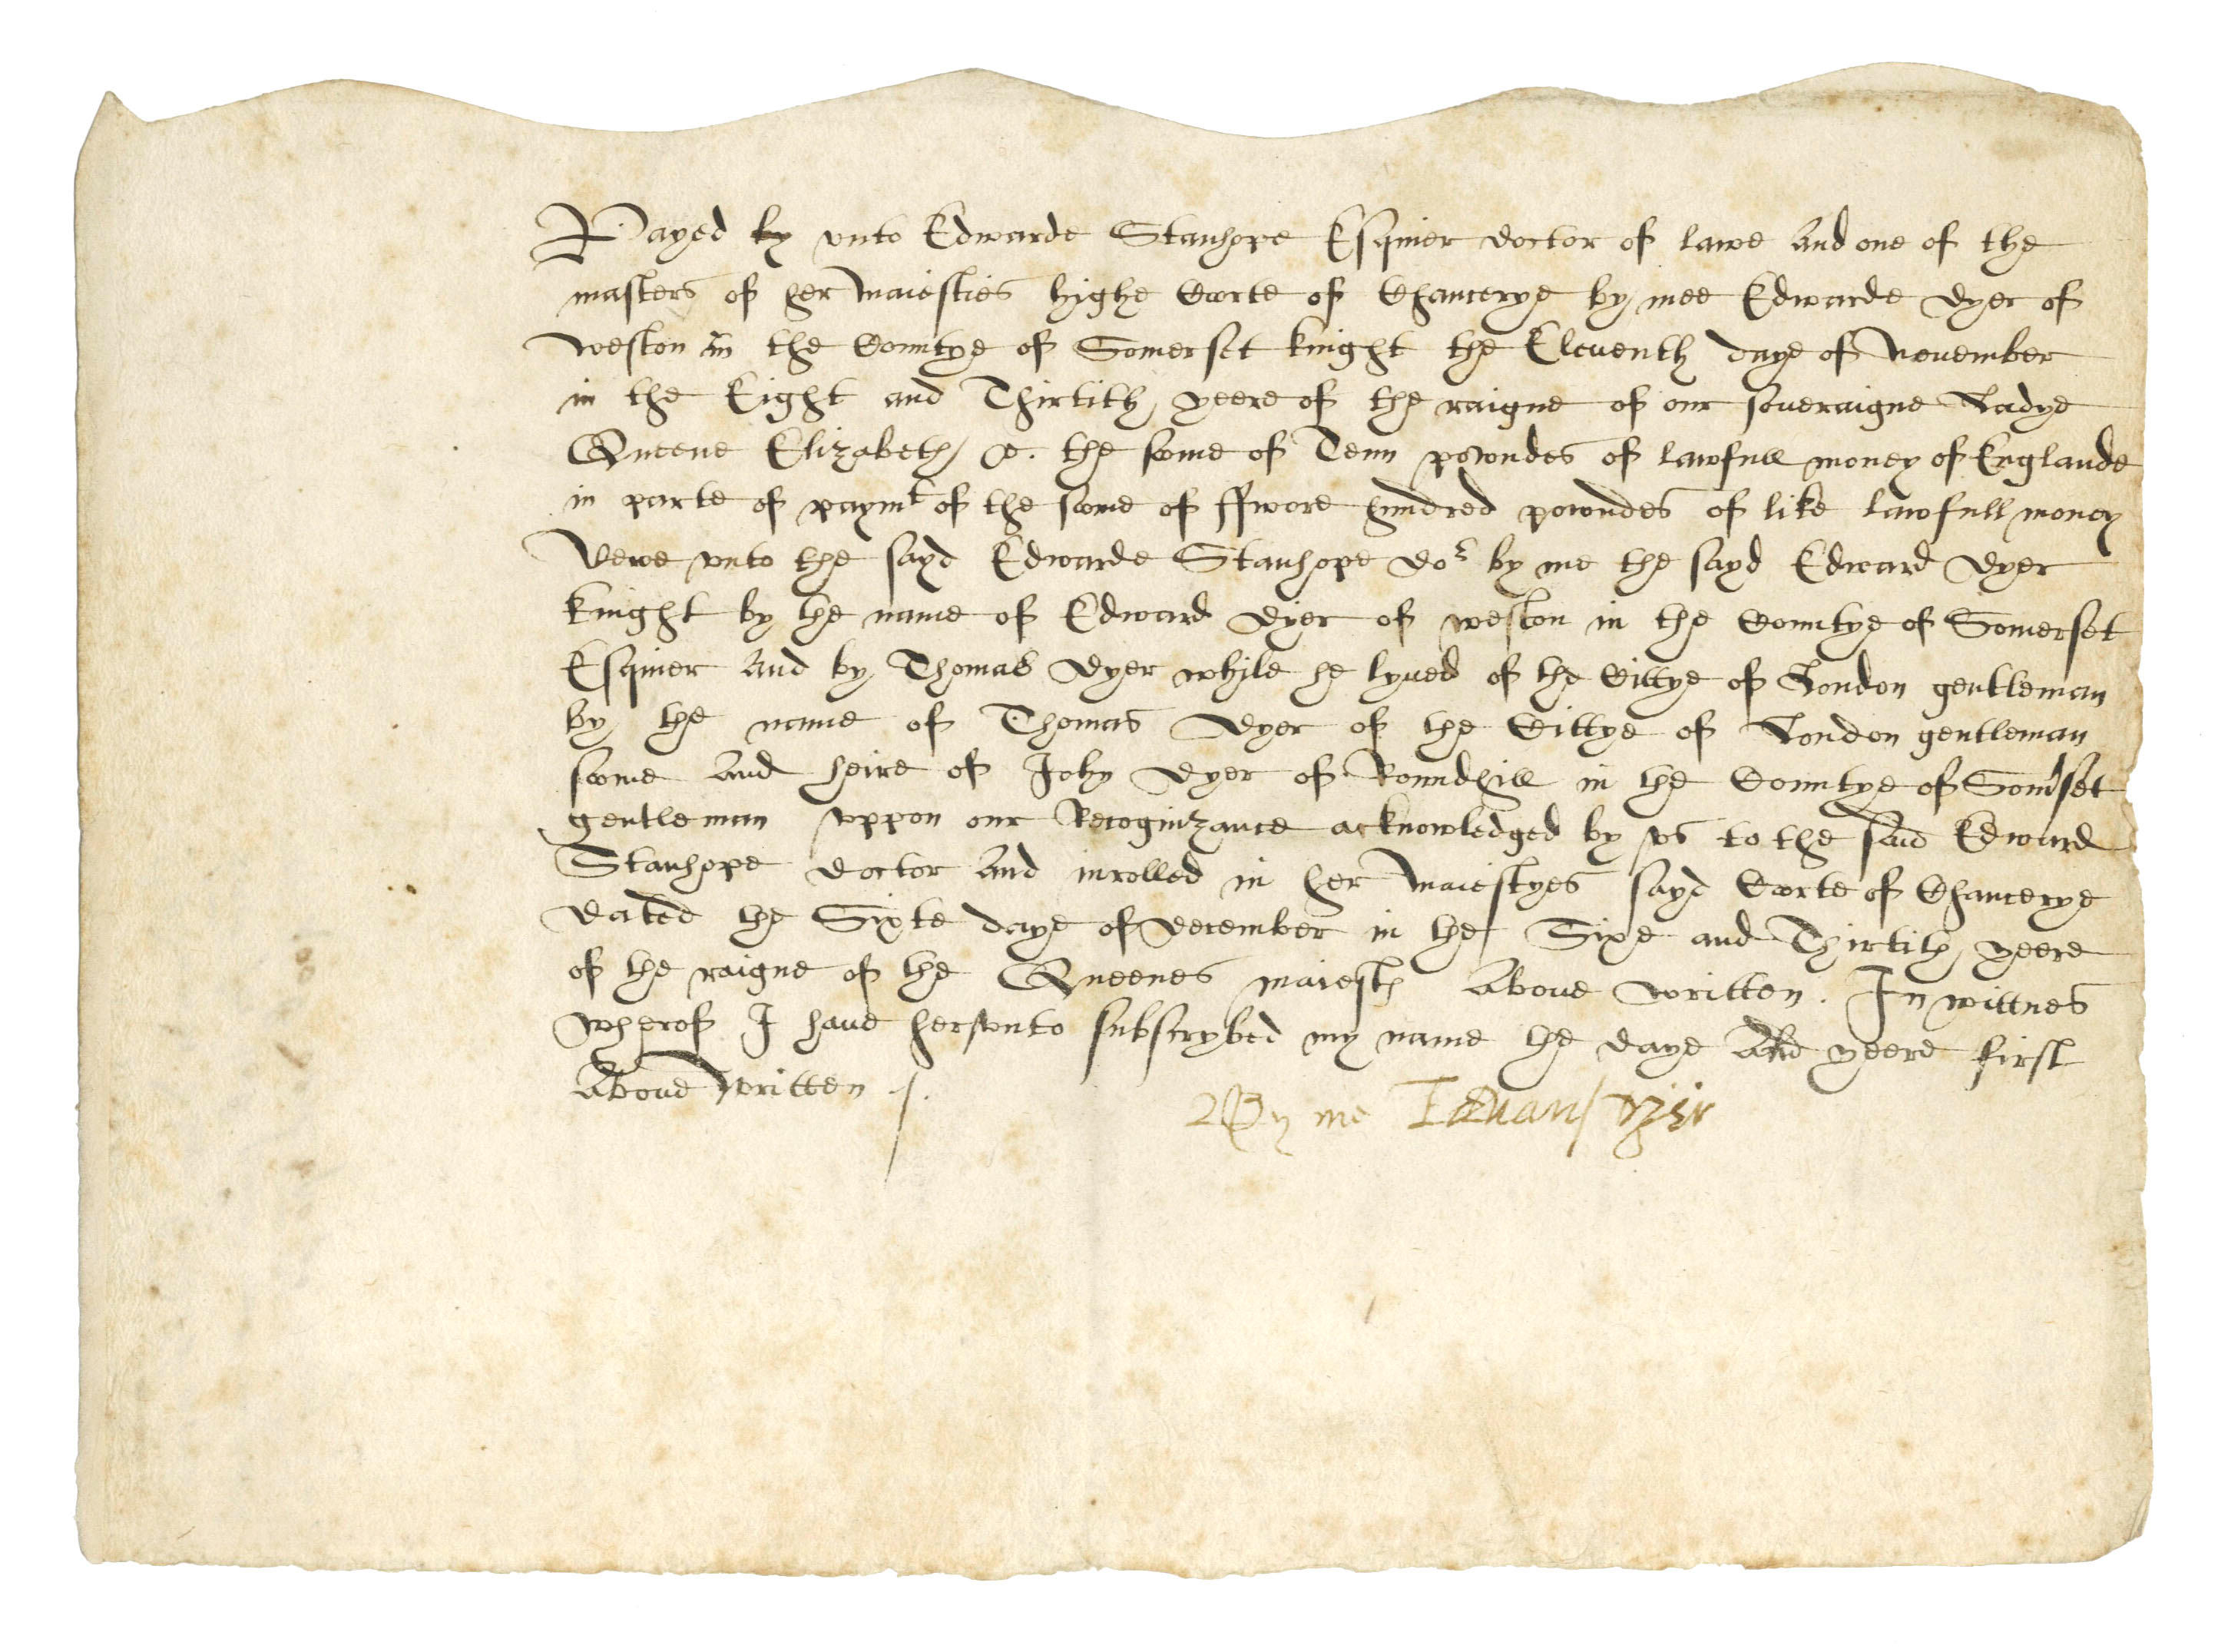 Payed by vnto Edwarde Stanhope Esquier doctor of lawe And one of the
masters of her Maiesties highe Corte of Chancerye by mee Edwarde Dyer of
Weston in the Countye of Somerset knight the Eleuenth daye of November
in the Eight and Thirtith yeere of the raigne of our soueraigne Ladye
Queene Elizabeth &c. the some of Tenn powndes of lawfull money of Englande
in parte of paymt of the some of ffwore hundred powndes of like lawfull money
Dewe vnto the sayd Edwarde Stanhope Dor by me the sayd Edward Dyer
knight by the name of Edward Dyer of weston in the Countye of Somerset
Esquier And by Thomas Dyer while he lyued of the Cittye of London gentleman
by the name of Thomas Dyer of the Cittye of London gentleman
sonne And heire of John Dyer of Roundhill in the Countye of Somset
gentleman vppon our Recognizance acknowledged by vs to the said Edward
Stanhope doctor And inrolled in her Maiestyes sayd Corte of Chancerye
dated the Sixte daye of December in the Sixe and Thirtith yeere
of the raigne of the Queenes maiesty Aboue written. In wittnes
wherof I haue hervnto subscrybed my name the daye And yeere first
Aboue written ./.
By me Edward Dyer